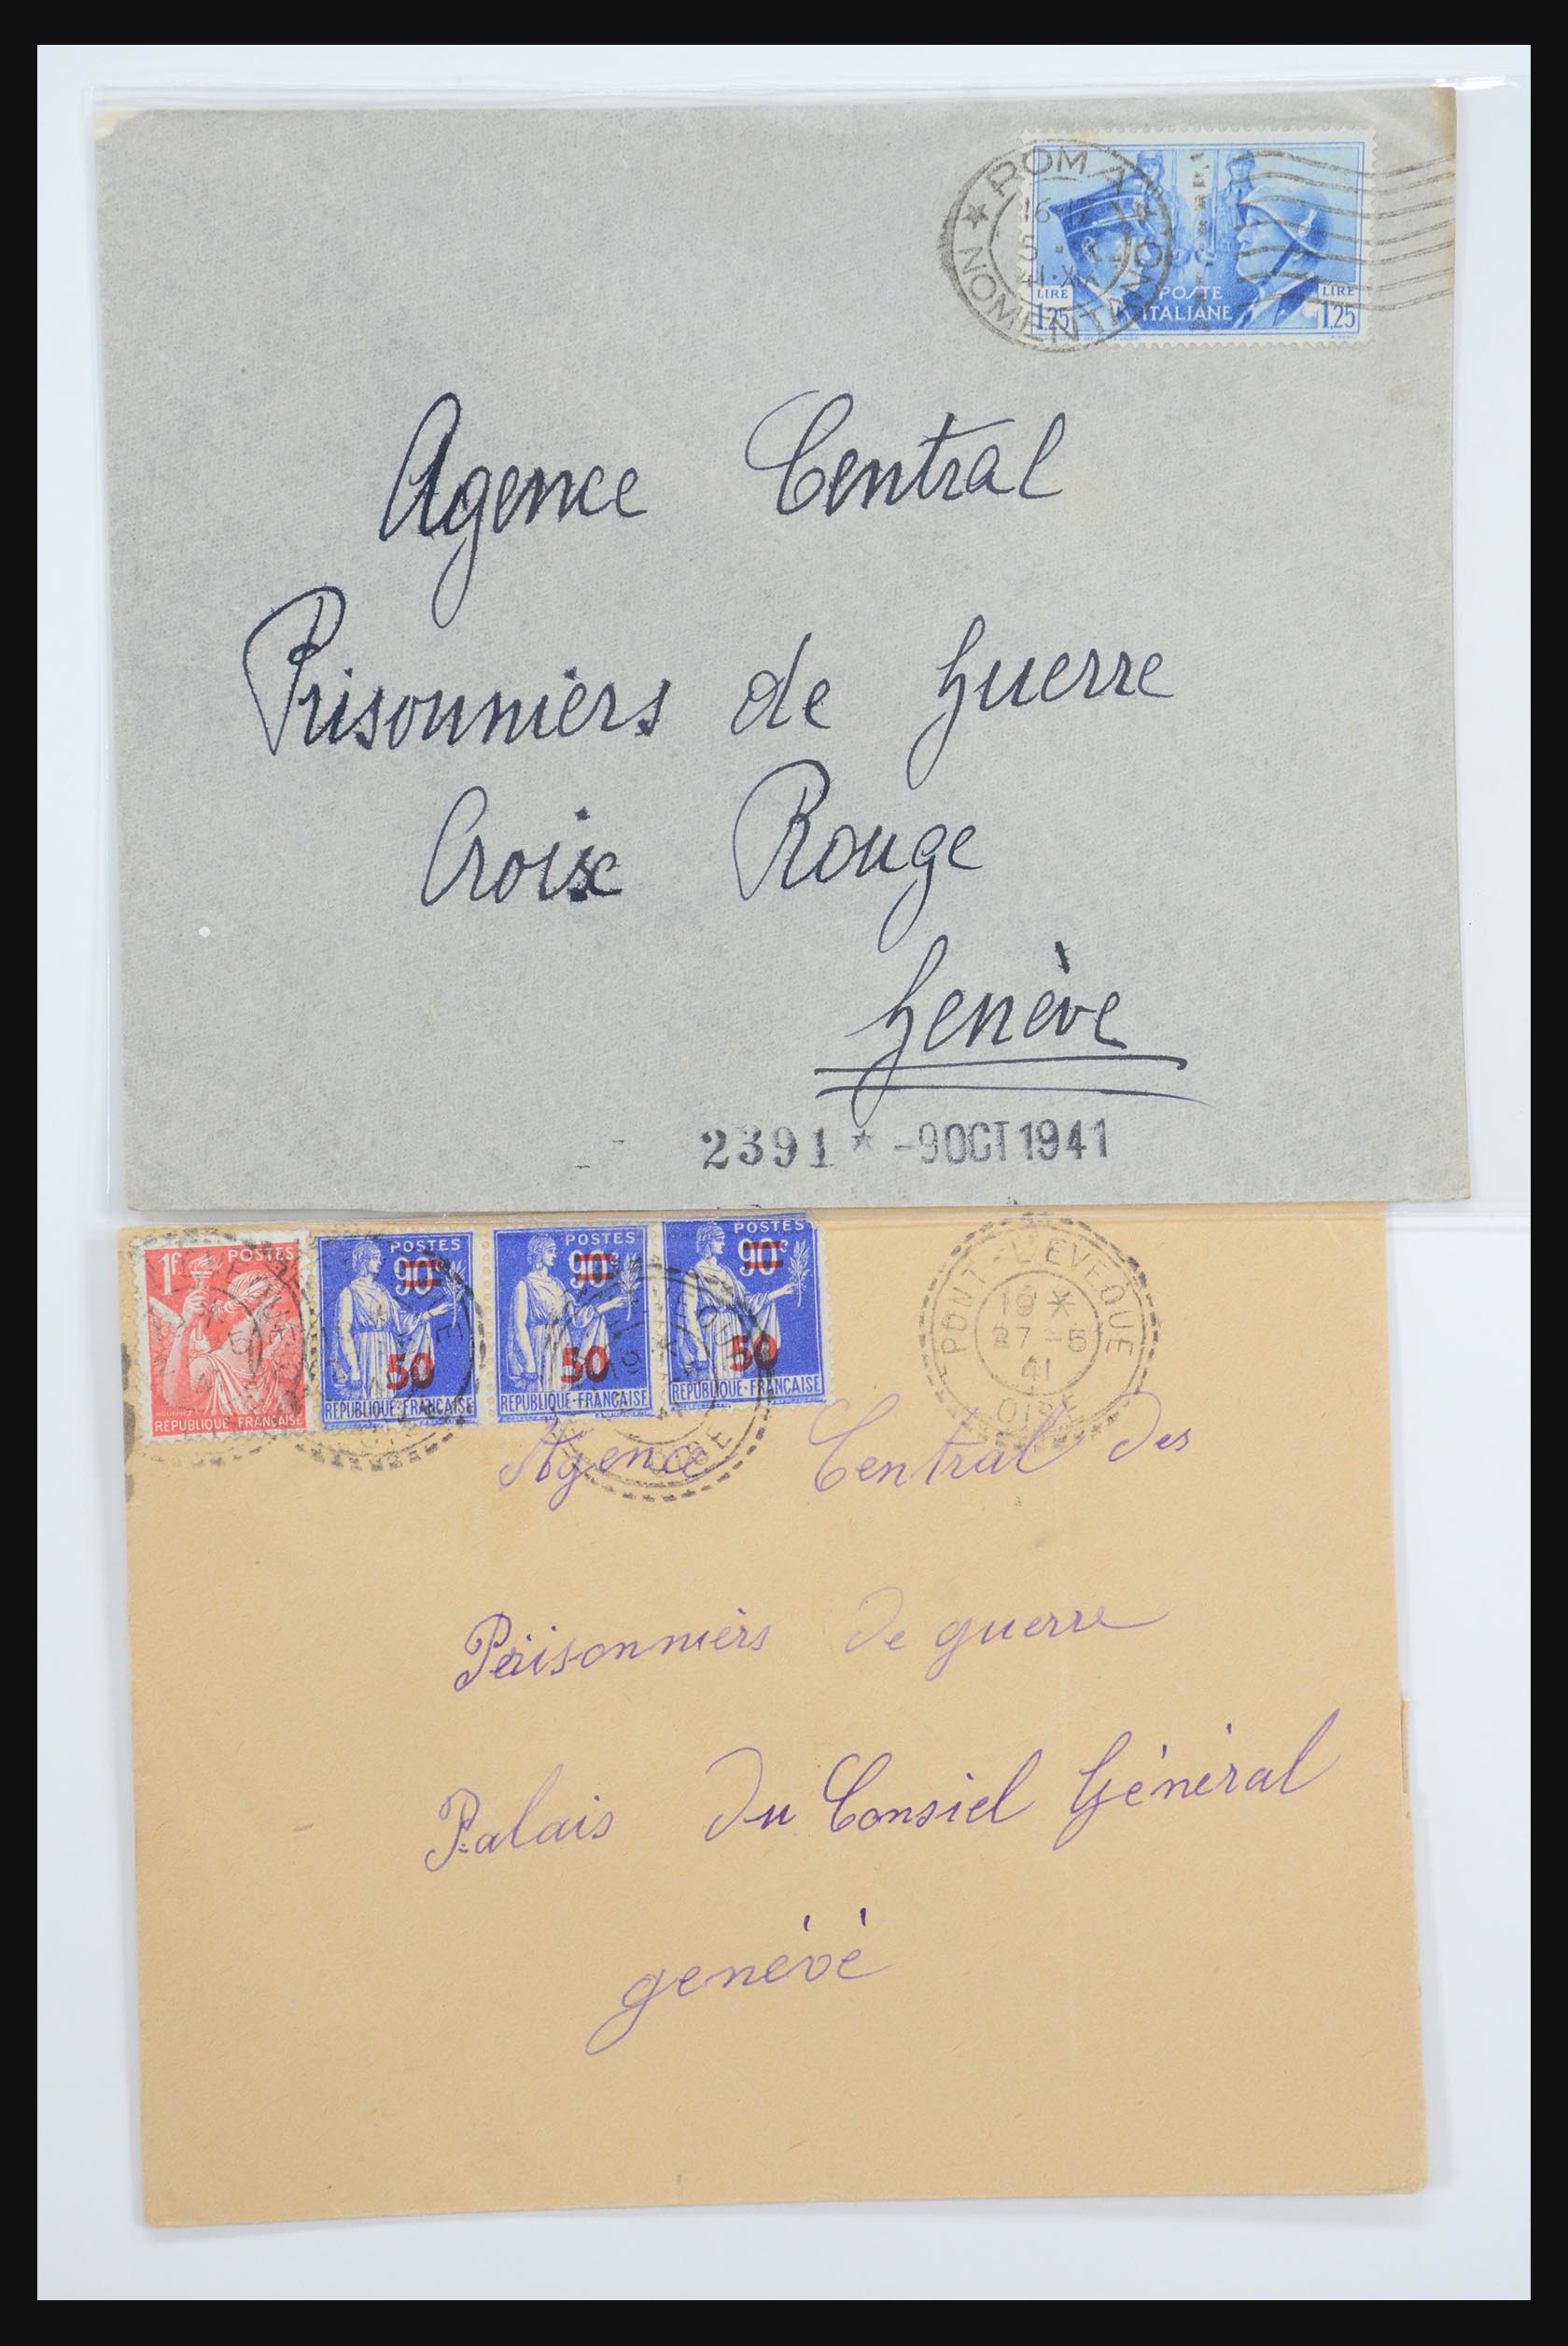 ROMA
NOMENTANO
16-17
LIRE
1,25
POSTE
ITALIANE
LIRE
1,25
Agence Central
Prisonniers de Guerre
Croix Rouge
Genève
2391 * -9 OCT 1941
1f. POSTES
REPUBLIQUE FRANÇAISE
POSTES
90c
50
REPUBLIQUE-FRANÇAISE
POSTES
90c
50
REPUBLIQUE-FRANÇAISE
POSTES
90c
50
REPUBLIQUE-FRANÇAISE
PONT-L'EVEQUE
19 *
27 -5
41
OISE
Agence Central des
Prisonnièrs de guerre
Palais du Consiel Général
genévé